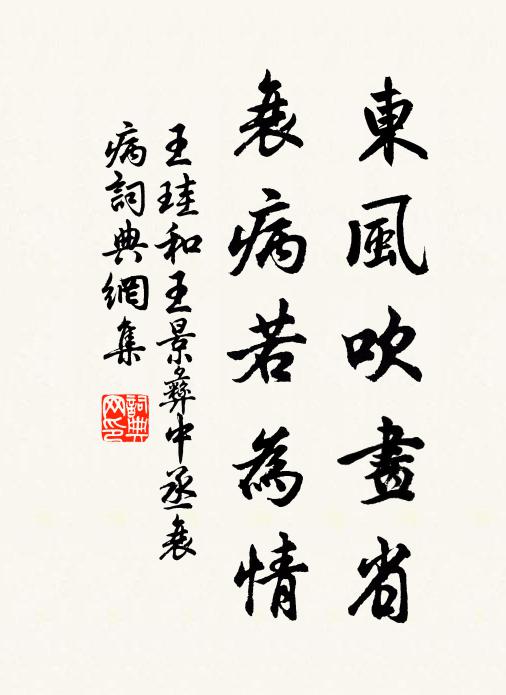 東風吹畫省
衰病若為情
王珪和王景彝中丞衰
病詞典網集
詞典网印